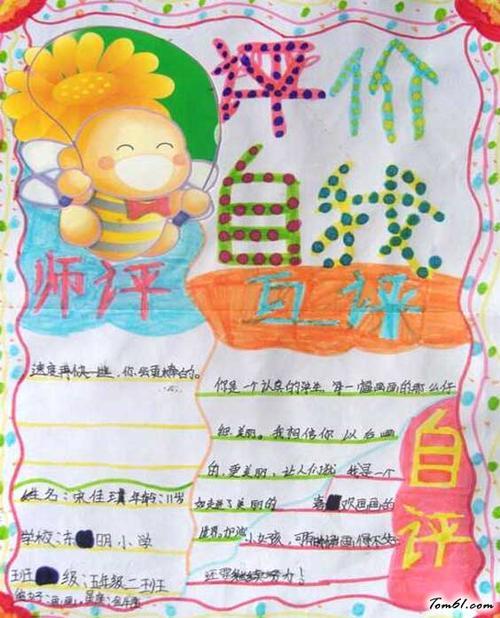 评价
自我
师评
互评
速度再快一些，你会更棒的。
你是一个认真的学生，每一幅画画的那么仔
细，美丽。我相信你以后画
的，更美丽，让人们
我是一个
如走进了美丽的
喜欢画画的
世界。加油
小女孩，可
还要继续努力！
自评
姓名：宋佳 年龄：11岁
学校：
明小学
班级：五年级二班
Tom61.com